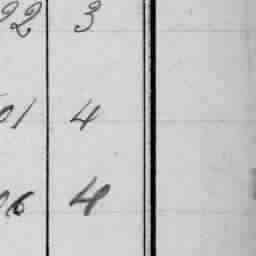 92 3
01 4
06 4